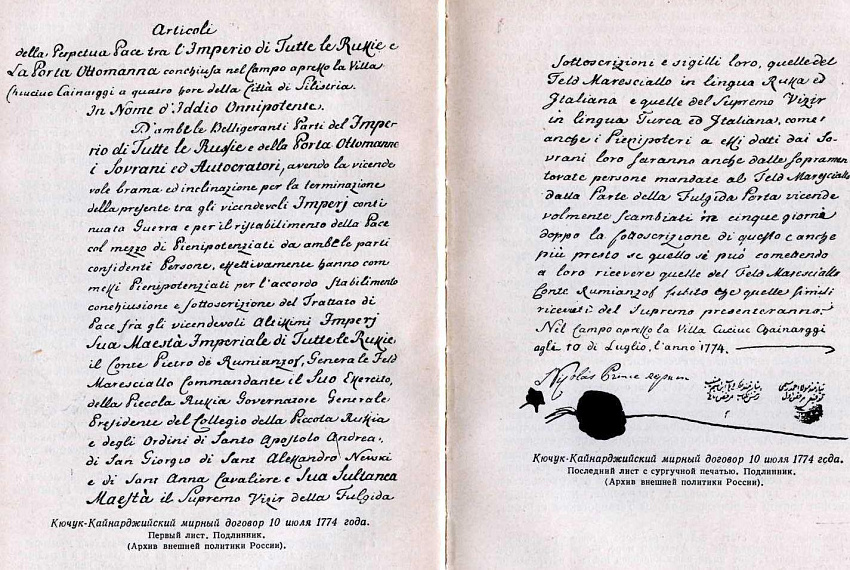 Articoli
della Perpetua Pace tra l'Imperio di Tutte le Russie e
La Porta Ottomanna conchiusa nel Campo apresso la Villa
Chuciuc Cainarggi a quatro hore della Città di Silistria.
In Nome d'Iddio Onnipotente.
D'ambe le Belligeranti Parti del Impe-
rio di Tutte le Russie e della Porta Ottomanne
i Sovrani ed Autocratori, avendo la vicende
vole brama ed inclinazione per la terminazione
della presente tra gli vicendevoli Imperj conti
nuata Guerra e per il ristabilimento della Pace
col mezzo di Pienipotenziati da ambe le parti
confidenti Persone, effettivamente hanno com
messi Pienipotenziati per l'accordo stabilimento
conchiusione e sottoscrizione del Trattato di
Pace fra gli vicendevoli Altissimi Imperj
Sua Maestà Imperiale di Tutte le Russie,
il Conte Pietro de Rumianzof, Generale Feld
Maresciallo Commandante il Suo Esercito,
della Piccola Russia Governatore Generale
Presidente del Collegio della Piccola Russia
e degli Ordini di Santo Apostolo Andrea,
di San Giorgio di Sant Alessandro Newski
e di Sant Anna Cavaliere e Sua Sultanea
Maestà il Supremo Vizir della Fulgida
Кючук-Кайнарджийский мирный договор 10 июля 1774 года.
Первый лист. Подлинник.
(Архив внешней политики России).
sottoscrizioni e sigilli loro, quelle del
Feld Maresciallo in lingua Russa ed
Italiana e quelle del Supremo Vizir
in lingua Turca ed Italiana, come
anche i Pienipoteri a essi dati dai So-
vrani loro saranno anche dalle sopramen
tovate persone mandate al Feld Maresciallo
dalla Parte della Fulgida Porta vicende
volmente scambiati in cinque giorni
doppo la sottoscrizione di questo e anche
più presto se quello si può comettendo
a loro ricevere quelle del Feld Maresciallo
Conte Rumianzof subito che quelle simili
ricevuti del Supremo presenteranno.
Nel Campo apresso la Villa Cuciuc Chainarggi
egli 10 di Luglio, l'anno 1774.
Nicolás Prince
Кючук-Кайнарджийский мирный договор 10 июля 1774 года.
Последний лист с сургучной печатью. Подлинник.
(Архив внешней политики России).